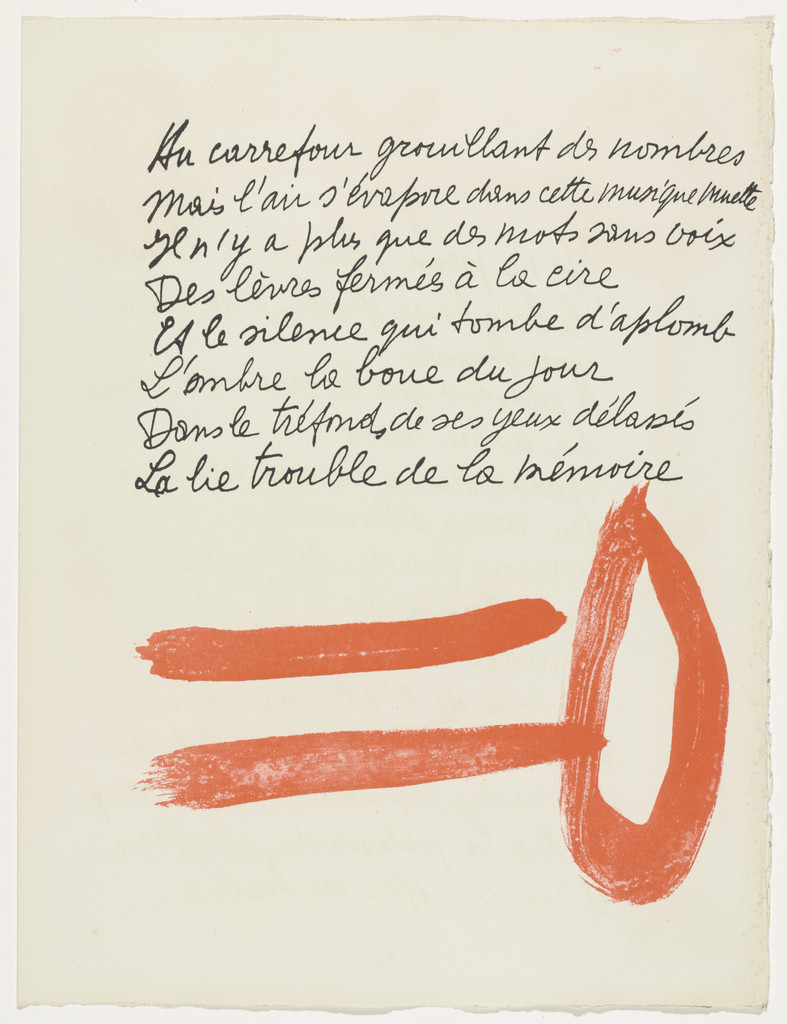 Au carrefour grouillant des nombres
Mais l'air s'évapore dans cette musique muette
Il n'y a plus que des mots sans voix
Des lèvres fermés à la cire
Et le silence qui tombe d'aplomb
L'ombre la boue du jour
Dans le tréfonds de ses yeux délassés
La lie trouble de la mémoire